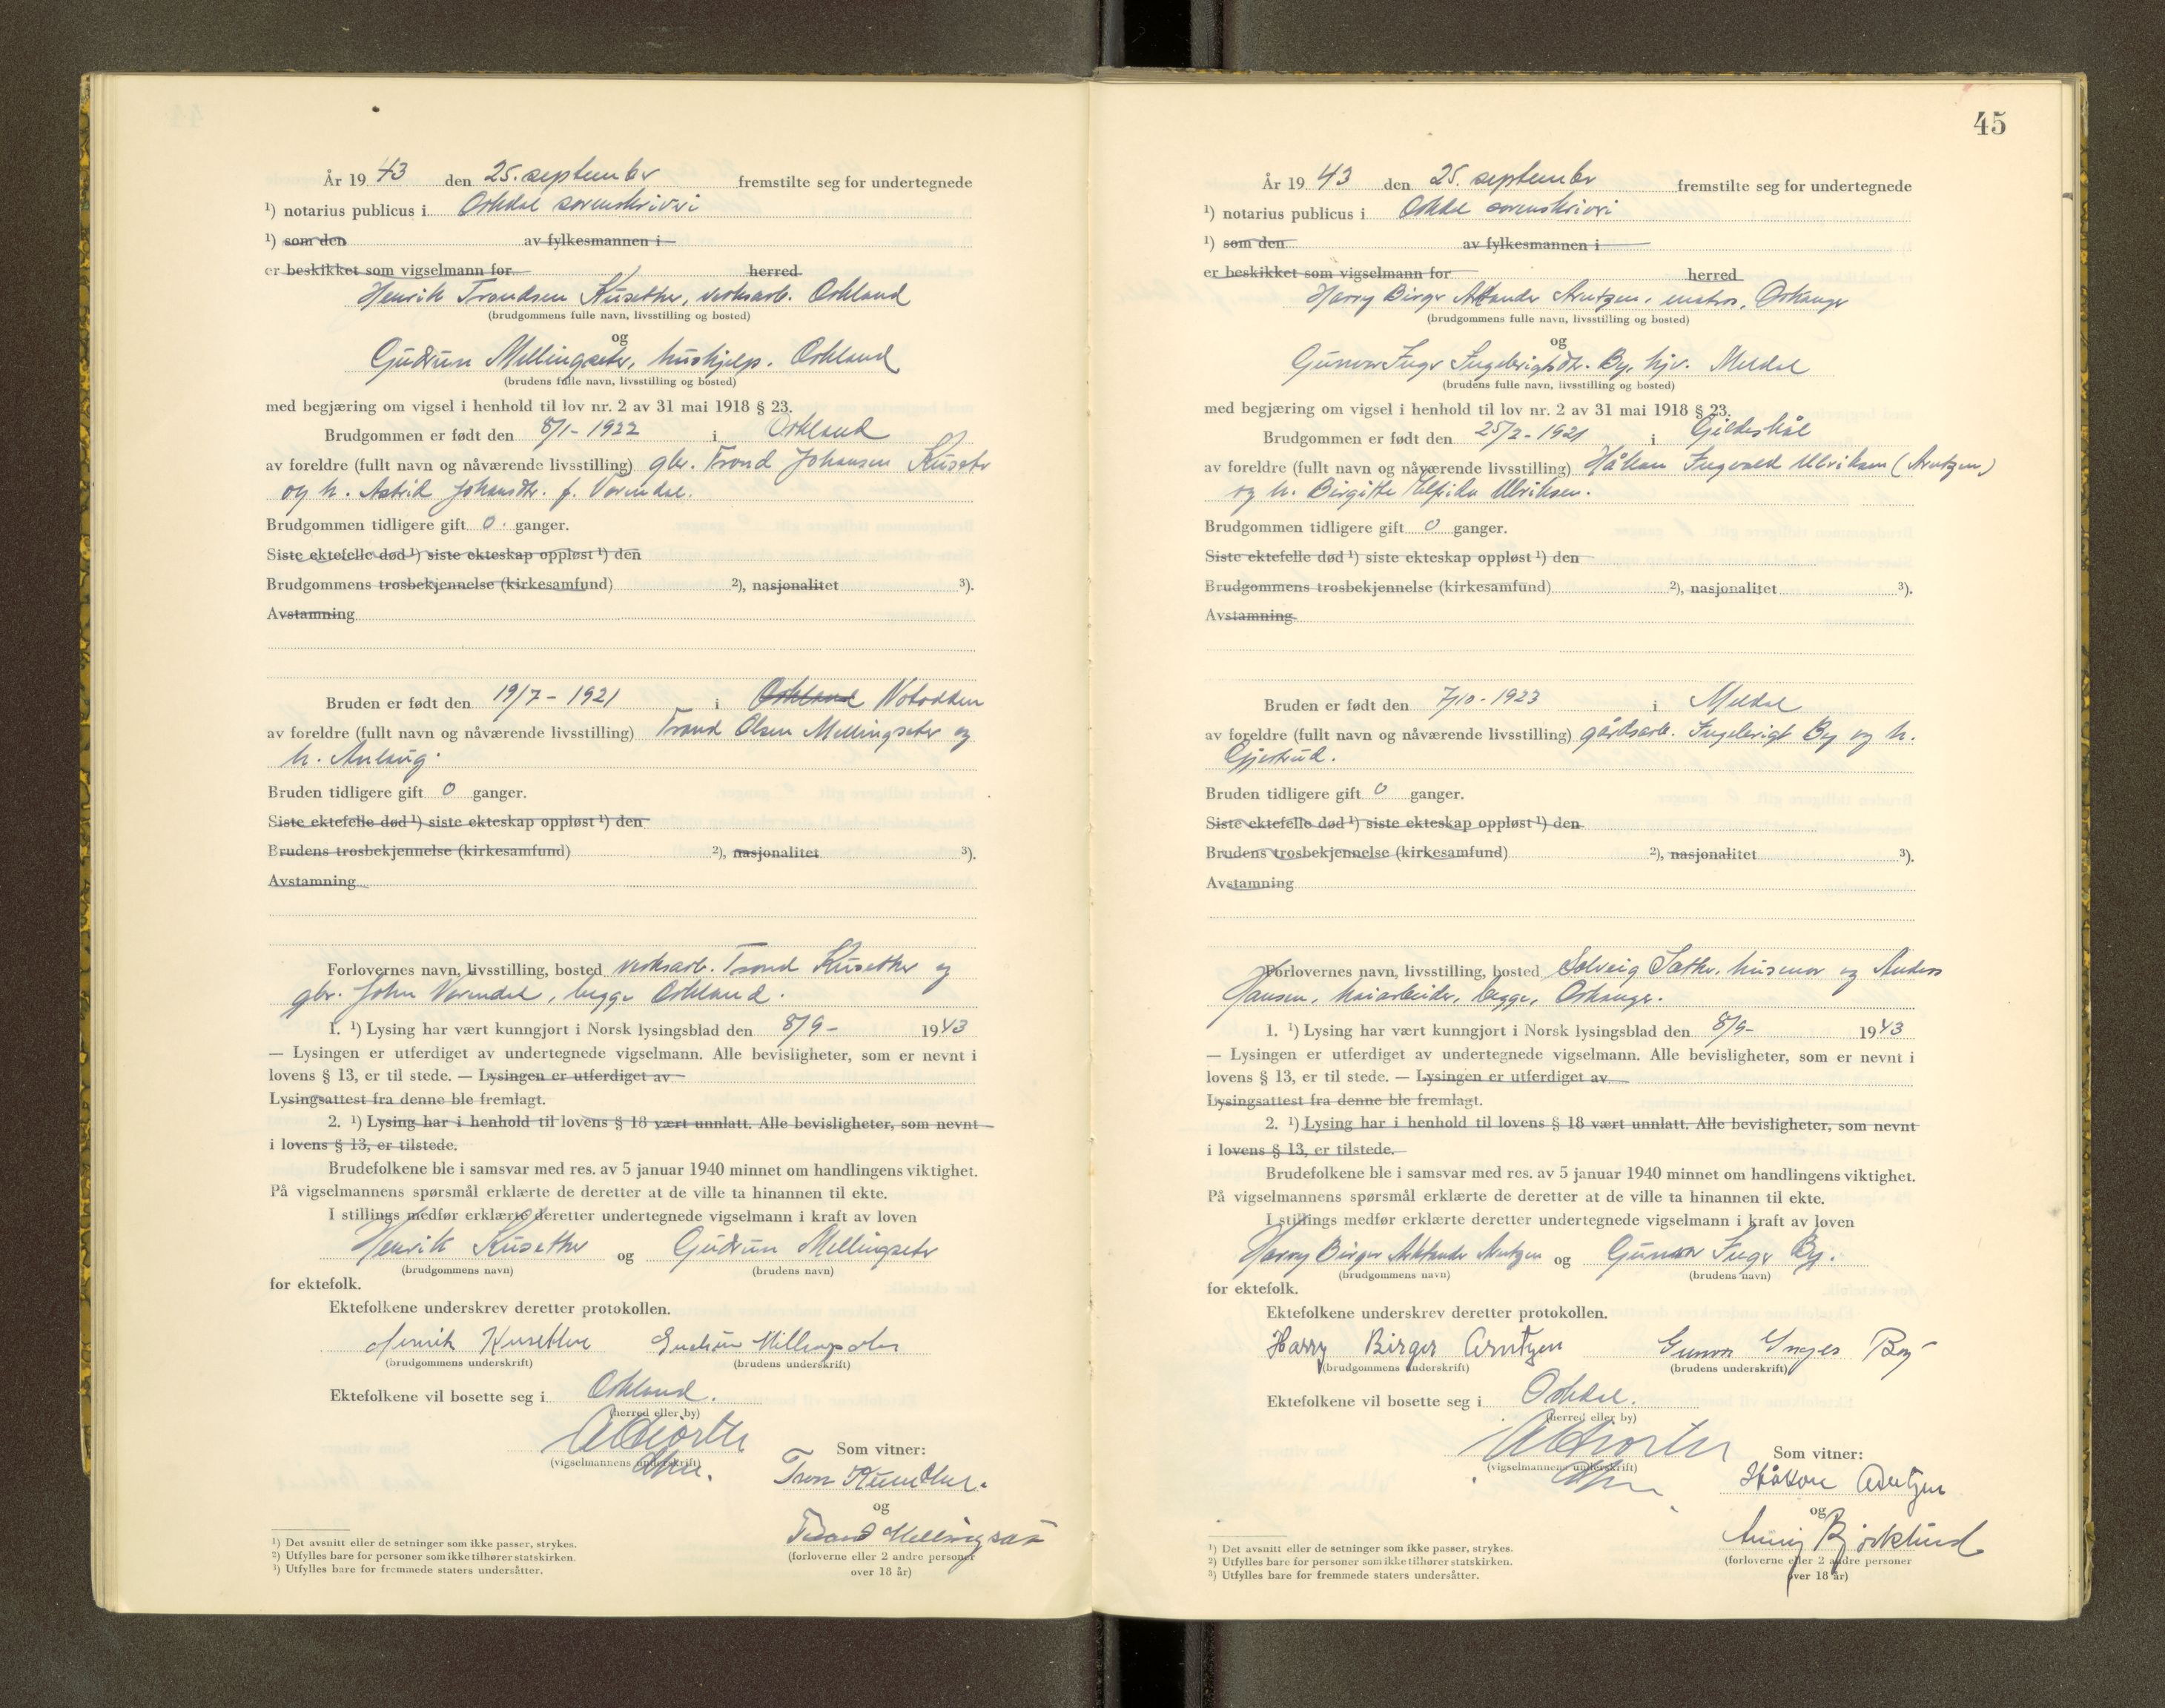 År 19 43 den 25. september fremstilte seg for undertegnede
¹) notarius publicus i Orkdal sorenskriveri
¹) som den av fylkesmannen i
er beskikket som vigselmann for herred
Henrik Trondsen Kusether, verksarb. Orkland
(brudgommens fulle navn, livsstilling og bosted)
og
Gudrun Mellingseter, hushjelp. Orkland
(brudens fulle navn, livsstilling og bosted)
med begjæring om vigsel i henhold til lov nr. 2 av 31 mai 1918 § 23.
Brudgommen er født den 8/1-1922 i Orkland
av foreldre (fullt navn og nåværende livsstilling) gbr. Trond Johansen Kuseter
og h. Astrid Johansdtr. f. Vormdal.
Brudgommen tidligere gift 0 ganger.
Siste ektefelle død ¹) siste ekteskap oppløst ¹) den
Brudgommens trosbekjennelse (kirkesamfund) ²), nasjonalitet ³).
Avstamning
Bruden er født den 19/7-1921 i Orkland Notodden
av foreldre (fullt navn og nåværende livsstilling) Trond Olsen Mellingseter og
h. Anlaug.
Bruden tidligere gift 0 ganger.
Siste ektefelle død ¹) siste ekteskap oppløst ¹) den
Brudens trosbekjennelse (kirkesamfund) ²), nasjonalitet ³).
Avstamning
Forlovernes navn, livsstilling, bosted verksarb. Trond Kusether og
gbr. John Vormdal, begge Orkland.
1. ¹) Lysing har vært kunngjort i Norsk lysingsblad den 8/9- 1943
— Lysingen er utferdiget av undertegnede vigselmann. Alle bevisligheter, som er nevnt i
lovens § 13, er til stede. — Lysingen er utferdiget av
Lysingsattest fra denne ble fremlagt.
2. ¹) Lysing har i henhold til lovens § 18 vært unnlatt. Alle bevisligheter, som nevnt
i lovens § 13, er tilstede.
Brudefolkene ble i samsvar med res. av 5 januar 1940 minnet om handlingens viktighet.
På vigselmannens spørsmål erklærte de deretter at de ville ta hinannen til ekte.
I stillings medfør erklærte deretter undertegnede vigselmann i kraft av loven
Henrik Kusether og Gudrun Mellingseter
(brudgommens navn) (brudens navn)
for ektefolk.
Ektefolkene underskrev deretter protokollen.
Henrik Kusether Gudrun Mellingseter
(brudgommens underskrift) (brudens underskrift)
Ektefolkene vil bosette seg i Orkland.
(herred eller by)
(vigselmannens underskrift)
Som vitner:
Tron Kusether.
og
Trond Mellingsæt
(forloverne eller 2 andre personer
over 18 år)
¹) Det avsnitt eller de setninger som ikke passer, strykes.
²) Utfylles bare for personer som ikke tilhører statskirken.
³) Utfylles bare for fremmede staters undersåtter.
45
År 19 43 den 25. september fremstilte seg for undertegnede
¹) notarius publicus i Orkdal sorenskriveri
¹) som den av fylkesmannen i
er beskikket som vigselmann for herred
Harry Birger Arntzen, matros, Orkanger
(brudgommens fulle navn, livsstilling og bosted)
og
Gunvor Inger Ingebrigtsdtr. By, hjv. Meldal
(brudens fulle navn, livsstilling og bosted)
med begjæring om vigsel i henhold til lov nr. 2 av 31 mai 1918 § 23.
Brudgommen er født den 25/2-1921 i Gildeskål
av foreldre (fullt navn og nåværende livsstilling) Håkon Ingvald Ulriksen (Arntzen)
og h. Birgitte Ulriksen.
Brudgommen tidligere gift 0 ganger.
Siste ektefelle død ¹) siste ekteskap oppløst ¹) den
Brudgommens trosbekjennelse (kirkesamfund) ²), nasjonalitet ³).
Avstamning
Bruden er født den 7/10-1923 i Meldal
av foreldre (fullt navn og nåværende livsstilling) gårdsarb. Ingebrigt By og h.
Gjertrud.
Bruden tidligere gift 0 ganger.
Siste ektefelle død ¹) siste ekteskap oppløst ¹) den
Brudens trosbekjennelse (kirkesamfund) ²), nasjonalitet ³).
Avstamning
Forlovernes navn, livsstilling, bosted Solveig Sæther, husmor og Anders
Hansen, kaiarbeider, begge, Orkanger.
1. ¹) Lysing har vært kunngjort i Norsk lysingsblad den 8/9- 1943
— Lysingen er utferdiget av undertegnede vigselmann. Alle bevisligheter, som er nevnt i
lovens § 13, er til stede. — Lysingen er utferdiget av
Lysingsattest fra denne ble fremlagt.
2. ¹) Lysing har i henhold til lovens § 18 vært unnlatt. Alle bevisligheter, som nevnt
i lovens § 13, er tilstede.
Brudefolkene ble i samsvar med res. av 5 januar 1940 minnet om handlingens viktighet.
På vigselmannens spørsmål erklærte de deretter at de ville ta hinannen til ekte.
I stillings medfør erklærte deretter undertegnede vigselmann i kraft av loven
Harry Birger Arntzen og Gunvor Inger By.
(brudgommens navn) (brudens navn)
for ektefolk.
Ektefolkene underskrev deretter protokollen.
Harry Birger Arntzen Gunvor Inger By
(brudgommens underskrift) (brudens underskrift)
Ektefolkene vil bosette seg i Orkdal.
(herred eller by)
(vigselmannens underskrift)
Som vitner:
Håkon Arntzen
og
Anny Bjørklund
(forloverne eller 2 andre personer
over 18 år)
¹) Det avsnitt eller de setninger som ikke passer, strykes.
²) Utfylles bare for personer som ikke tilhører statskirken.
³) Utfylles bare for fremmede staters undersåtter.